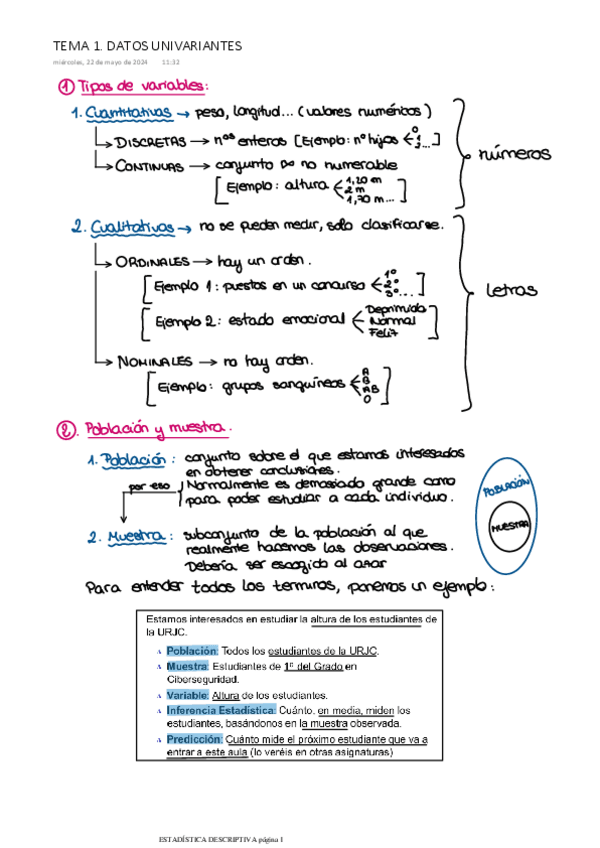 TEMA 1. DATOS UNIVARIANTES
miércoles, 22 de mayo de 2024 11:32
① Tipos de variables:
1. Cuantitativas → peso, longitud... (valores numéricos)
DISCRETAS → nºs enteros [Ejemplo: nº hijos < 0 1 2...]
CONTINUAS → conjunto ∞ no numerable
[Ejemplo: altura < 1,20 m 2 m 1,70 m...]
números
2. Cualitativas → no se pueden medir, solo clasificarse.
ORDINALES → hay un orden.
[Ejemplo 1: puestos en un concurso < 1º 2º 3º...]
[Ejemplo 2: estado emocional < Deprimido Normal Feliz]
NOMINALES → no hay orden.
[Ejemplo: grupos sanguíneos < A B AB O]
letras
②. Población y muestra.
1. Población: conjunto sobre el que estamos interesados
en obtener conclusiones.
por eso
Normalmente es demasiado grande como
para poder estudiar a cada individuo.
2. Muestra: subconjunto de la población al que
realmente hacemos las observaciones.
Debería ser escogido al azar
POBLACIÓN
MUESTRA
Para entender todos los terminos, ponemos un ejemplo:
Estamos interesados en estudiar la altura de los estudiantes de
la URJC.
Población: Todos los estudiantes de la URJC.
Muestra: Estudiantes de 1º del Grado en
Ciberseguridad.
Variable: Altura de los estudiantes.
Inferencia Estadística: Cuánto, en media, miden los
estudiantes, basándonos en la muestra observada.
Predicción: Cuánto mide el próximo estudiante que va a
entrar a este aula (lo veréis en otras asignaturas)
ESTADÍSTICA DESCRIPTIVA página 1